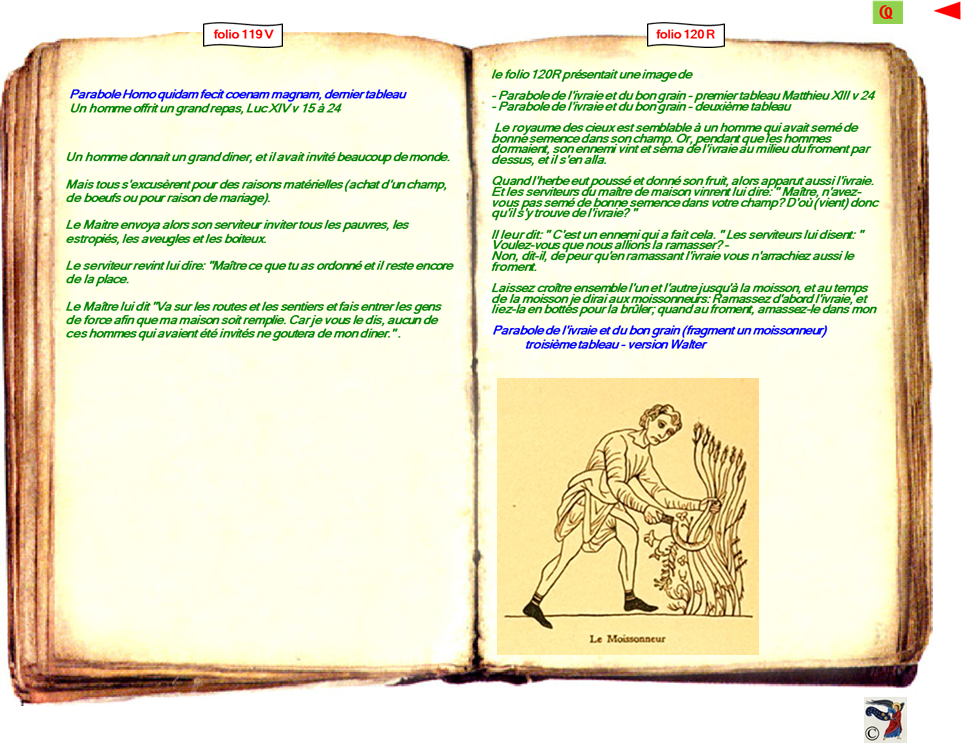 folio 119 V
Parabole Homo quidam fecit coenam magnam, dernier tableau
Un homme offrit un grand repas, Luc XIV v 15 à 24
Un homme donnait un grand diner, et il avait invité beaucoup de monde.
Mais tous s'excusèrent pour des raisons matérielles (achat d'un champ,
de boeufs ou pour raison de mariage).
Le Maitre envoya alors son serviteur inviter tous les pauvres, les
estropiés, les aveugles et les boiteux.
Le serviteur revint lui dire: "Maître ce que tu as ordonné et il reste encore
de la place.
Le Maître lui dit "Va sur les routes et les sentiers et fais entrer les gens
de force afin que ma maison soit remplie. Car je vous le dis, aucun de
ces hommes qui avaient été invités ne goutera de mon diner." .
folio 120 R
le folio 120R présentait une image de
- Parabole de l'ivraie et du bon grain - premier tableau Matthieu XIII v 24
- Parabole de l'ivraie et du bon grain - deuxième tableau
Le royaume des cieux est semblable à un homme qui avait semé de
bonne semence dans son champ. Or, pendant que les hommes
dormaient, son ennemi vint et sema de l'ivraie au milieu du froment par
dessus, et il s'en alla.
Quand l'herbe eut poussé et donné son fruit, alors apparut aussi l'ivraie.
Et les serviteurs du maître de maison vinrent lui dire: " Maître, n'avez-
vous pas semé de bonne semence dans votre champ? D'où (vient) donc
qu'il s'y trouve de l'ivraie? "
Il leur dit: " C'est un ennemi qui a fait cela. " Les serviteurs lui disent: "
Voulez-vous que nous allions la ramasser? -
Non, dit-il, de peur qu'en ramassant l'ivraie vous n'arrachiez aussi le
froment.
Laissez croître ensemble l'un et l'autre jusqu'à la moisson, et au temps
de la moisson je dirai aux moissonneurs: Ramassez d'abord l'ivraie, et
liez-la en bottes pour la brûler; quand au froment, amassez-le dans mon
Parabole de l'ivraie et du bon grain (fragment un moissonneur)
troisième tableau - version Walter
Le Moissonneur
©